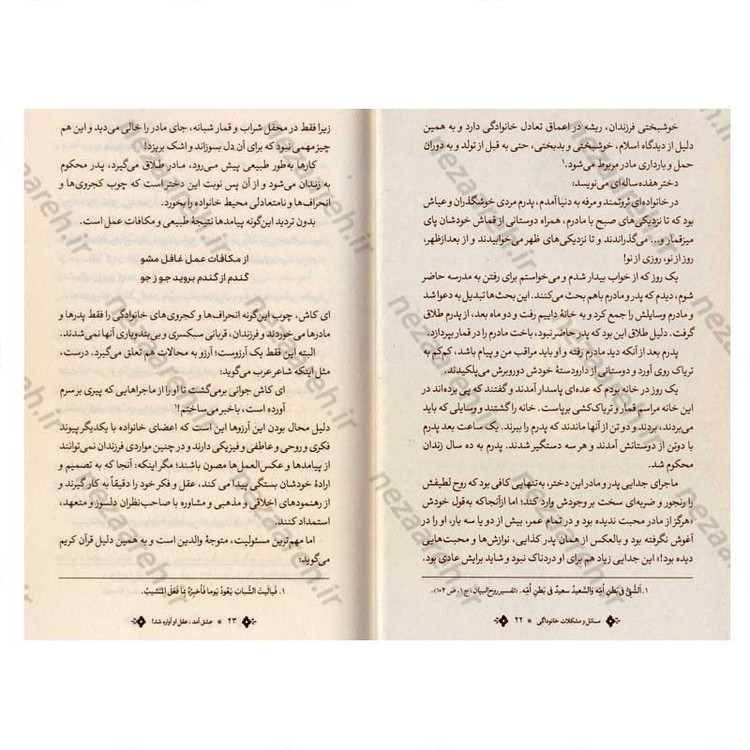 خوشبختی فرزندان، ریشه در اعماق تعادل خانوادگی دارد و به همین
دلیل از دیدگاه اسلام، خوشبختی و بدبختی، حتی به قبل از تولد و به دوران
حمل و بارداری مادر مربوط می‌شود.¹
دختر هفده‌ساله‌ای می‌نویسد:
در خانواده‌ای ثروتمند و مرفه به دنیا آمدم، پدرم مردی خوشگذران و عیاش
بود که تا نزدیکی‌های صبح با مادرم، همراه دوستانی از قماش خودشان پای
میز قمار و... می‌گذراندند و تا نزدیکی‌های ظهر می‌خوابیدند و از بعدازظهر،
روز از نو، روزی از نو!
یک روز که از خواب بیدار شدم و می‌خواستم برای رفتن به مدرسه حاضر
شوم، دیدم که پدر و مادرم باهم بحث می‌کنند. این بحث‌ها تبدیل به دعوا شد
و مادرم وسایلش را جمع کرد و به خانهٔ داییم رفت و دو ماه بعد، از پدرم طلاق
گرفت. دلیل طلاق این بود که پدر حاضر نبود، باخت مادرم را در قمار بپردازد.
پدرم بعد از آنکه دید مادرم رفته و او باید مراقب من و پیام باشد، کم‌کم به
تریاک روی آورد و دوستانی از دارودستهٔ خودش دوروبرش می‌پلکیدند.
یک روز در خانه بودم که عده‌ای پاسدار آمدند و گفتند که پی برده‌اند در
این خانه مراسم قمار و تریاک‌کشی برپاست. خانه را گشتند و وسایلی که باید
می‌بردند، بردند و دو تن از آنها ماندند که پدرم را ببرند. یک ساعت بعد پدرم
با دوتن از دوستانش آمدند و هر سه دستگیر شدند. پدرم به ده سال زندان
محکوم شد.
ماجرای جدایی پدر و مادر این دختر، به‌تنهایی کافی بود که روح لطیفش
را رنجور و ضربه‌ای سخت بر وجودش وارد کند؛ اما ازآنجاکه به‌قول خودش
«هرگز از مادر محبت ندیده بود و در تمام عمر، بیش از دو یا سه بار، او را در
آغوش نگرفته بود و بالعکس از همان پدر کذایی، نوازش‌ها و محبت‌هایی
دیده بود!» این جدایی زیاد هم برای او دردناک نبود و شاید برایش عادی بود.
۱. اَلشَّقیُّ فی بَطنِ اُمِّه وَالسَّعیدُ سعیدٌ فی بَطنِ اُمِّه. (تفسیر روح‌البیان، ج۱، ص ۱۰۴).
مسائل و مشکلات خانوادگی * ۲۲
زیرا فقط در محفل شراب و قمار شبانه، جای مادر را خالی می‌دید و این هم
چیز مهمی نبود که برای آن دل بسوزاند و اشک بریزد!
کارها به‌طور طبیعی پیش می‌رود، مادر طلاق می‌گیرد، پدر محکوم
به زندان می‌شود و از آن پس نوبت این دختر است که چوب کجروی‌ها و
انحراف‌ها و نامتعادلی محیط خانواده را بخورد.
بدون تردید این‌گونه پیامدها نتیجهٔ طبیعی و مکافات عمل است.
از مکافات عمل غافل مشو
گندم از گندم بروید جو ز جو
ای کاش، چوب این‌گونه انحراف‌ها و کجروی‌های خانوادگی را فقط پدرها و
مادرها می‌خوردند و فرزندان، قربانی سبکسری و بی‌بندوباری آنها نمی‌شدند.
البته این فقط یک آرزوست؛ آرزو به محالات هم تعلق می‌گیرد. درست،
مثل اینکه شاعر عرب می‌گوید:
ای کاش جوانی برمی‌گشت تا او را از ماجراهایی که پیری بر سرم
آورده است، باخبر می‌ساختم!¹
دلیل محال بودن این آرزوها این است که اعضای خانواده با یکدیگر پیوند
فکری و روحی و عاطفی و فیزیکی دارند و در چنین مواردی فرزندان نمی‌توانند
از پیامدها و عکس‌العمل‌ها مصون باشند؛ مگر اینکه: آنجا که به تصمیم و
ارادهٔ خودشان بستگی پیدا می کند، عقل و فکر خود را دقیقاً به کار گیرند و
از رهنمودهای اخلاقی و مذهبی و مشاوره با صاحب‌نظران دلسوز و متعهد،
استمداد کنند.
اما مهم‌ترین مسئولیت، متوجهٔ والدین است و به همین دلیل قرآن کریم
می‌گوید:
۱. فَیالَیتَ الشَّبابَ یَعُودُ یَوما فَاُخبِرُهُ بِمَا فَعَلَ المَشیبُ.
۲۳ * عشق آمد، عقل او آواره شد!
nezaareh.ir